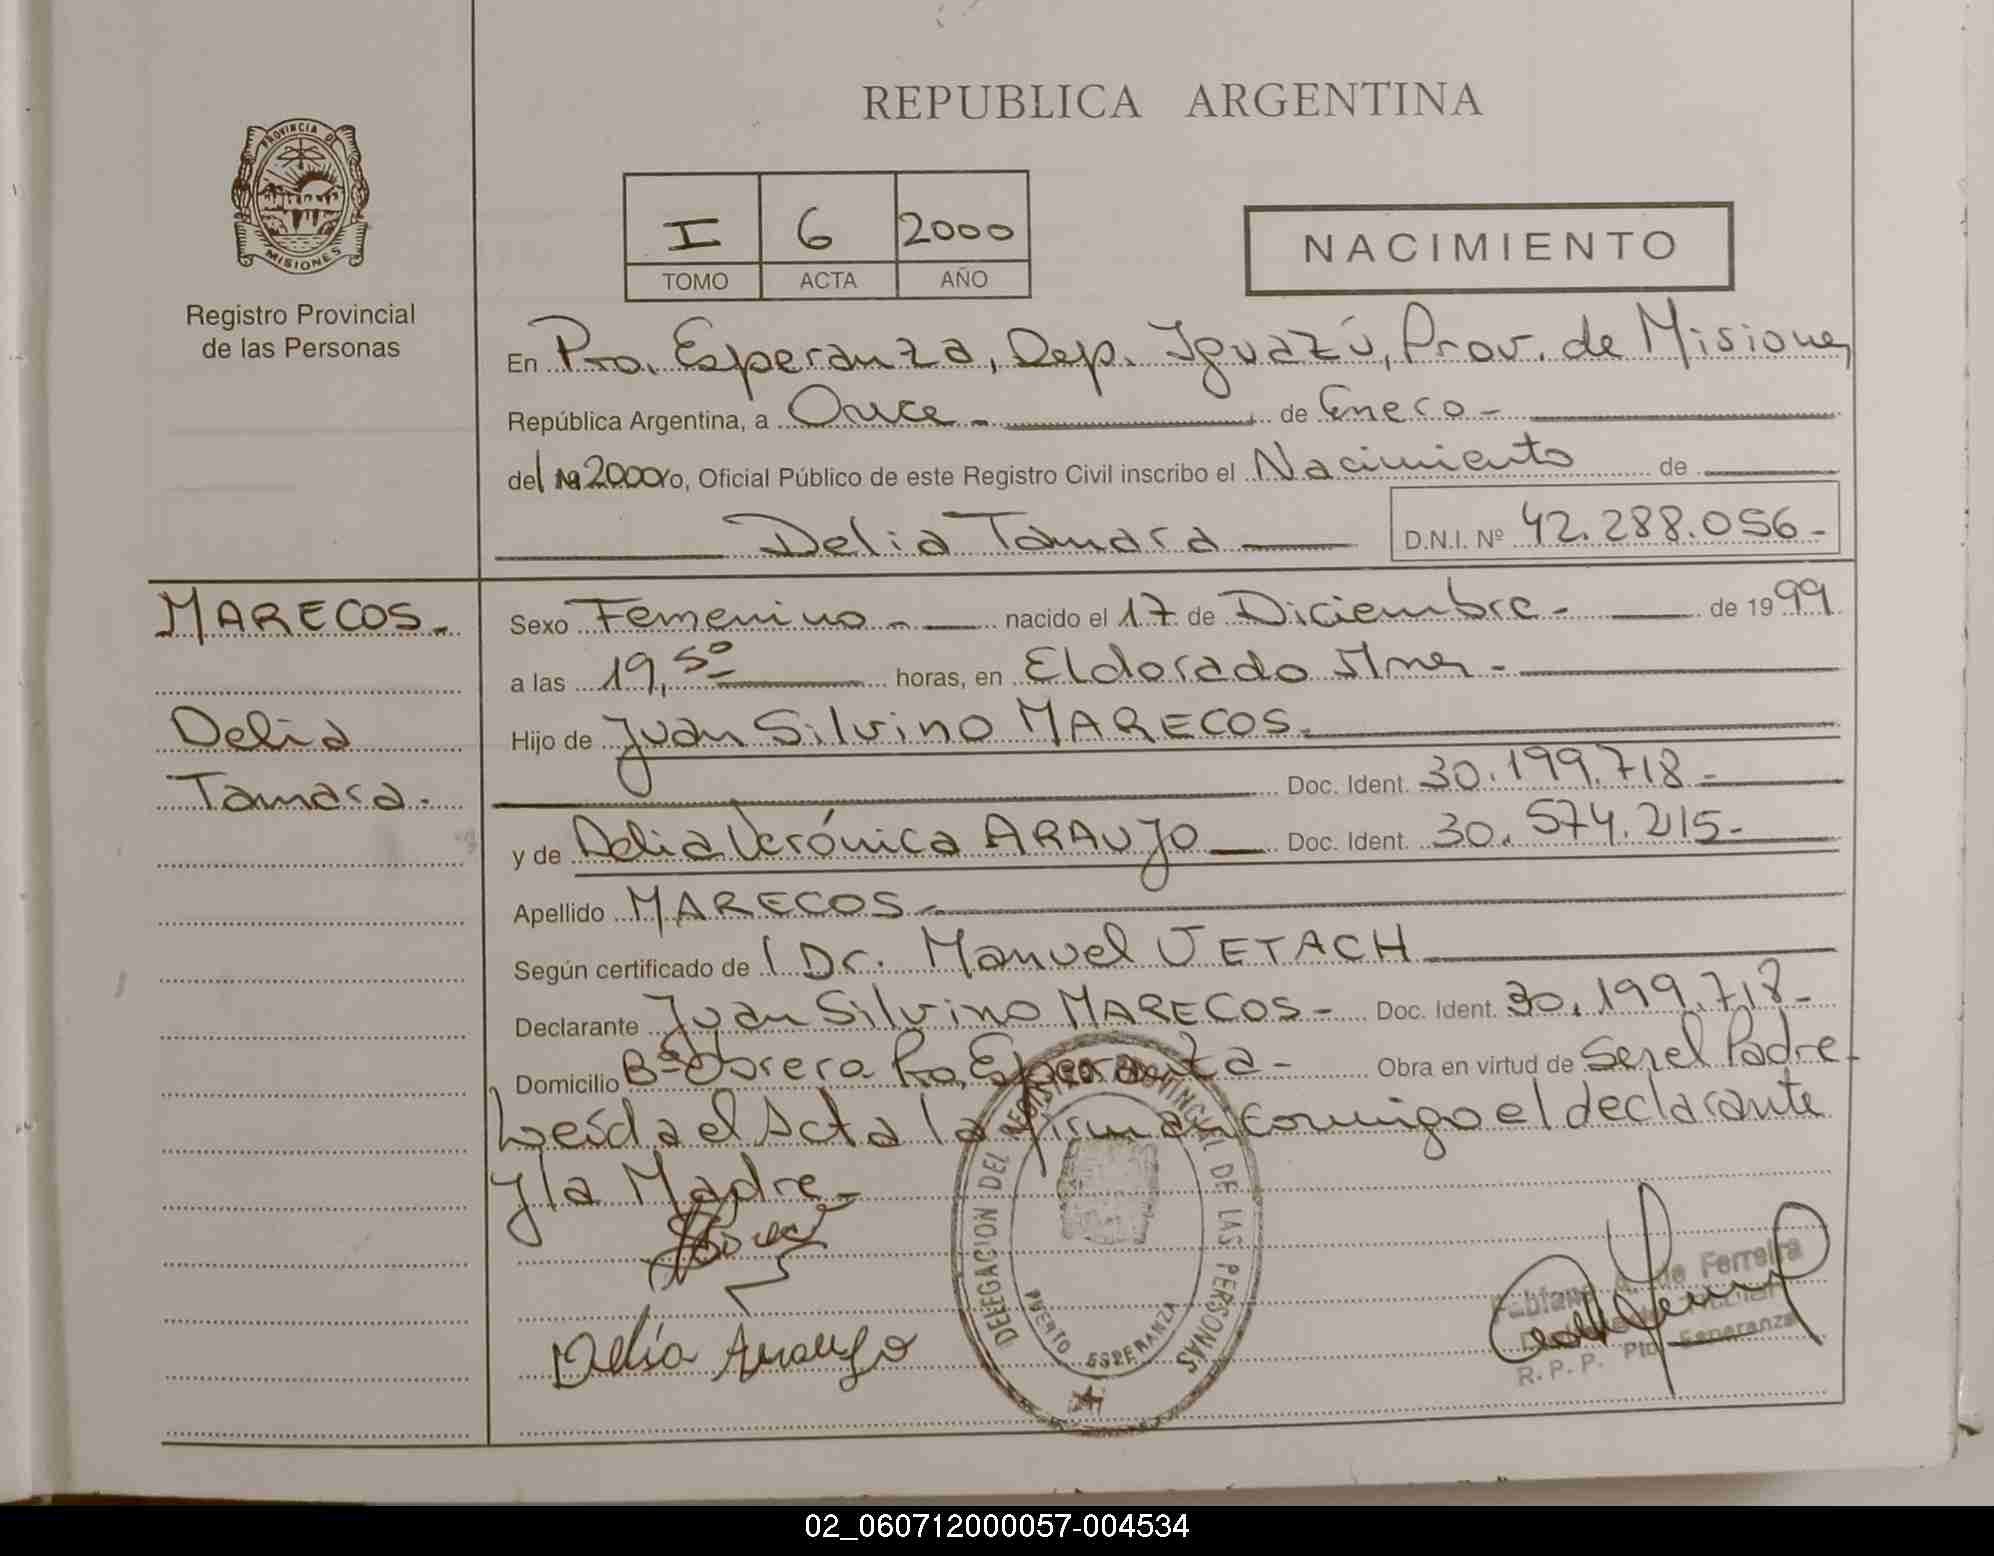 REPUBLICA ARGENTINA
PROVINCIA DE
MISIONES
Registro Provincial
de las Personas
I 6 2000
TOMO ACTA AÑO
NACIMIENTO
En Pto. Esperanza, Dep. Iguazú, Prov. de Misiones
República Argentina, a Once - de Enero -
del 2000 Oficial Público de este Registro Civil inscribo el Nacimiento de
Delia Tamara D.N.I. Nº 42.288.056-
MARECOS.
Delia
Tamara.
Sexo Femenino - nacido el 17 de Diciembre - de 19 99
a las 19,50 horas, en Eldorado Mnes -
Hijo de Juan Silvino MARECOS.
Doc. Ident. 30.199.718-
y de Delia Verónica ARAUJO Doc. Ident. 30.574.215-
Apellido MARECOS-
Según certificado de l Dr. Manuel JETACH
Declarante Juan Silvino MARECOS- Doc. Ident. 30.199.718-
Domicilio Bº Obrero Pto. Esperanza- Obra en virtud de Ser el Padre-
Leída el Acta la firman conmigo el declarante
y la Madre-
Delia Araujo
DELEGACION DEL REGISTRO PROVINCIAL DE LAS PERSONAS
PUERTO ESPERANZA
Fabiana de Ferreira
R.P.P. Pto. Esperanza
02_060712000057-004534